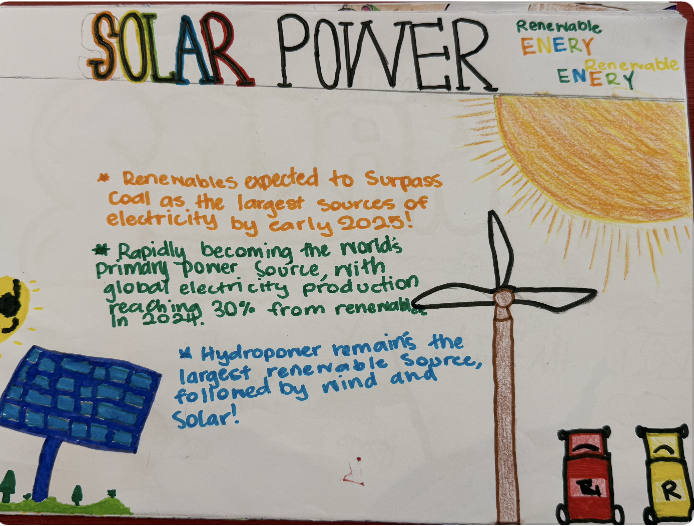 SOLAR POWER
Renewable
ENERY
Renewable
ENERY
* Renewables expected to Surpass
Coal as the largest sources of
electricity by early 2025!
* Rapidly becoming the world's
primary power source, with
global electricity production
reaching 30% from renewables
In 2024.
* Hydropower remains the
largest renewable source,
followed by wind and
Solar!
R
R